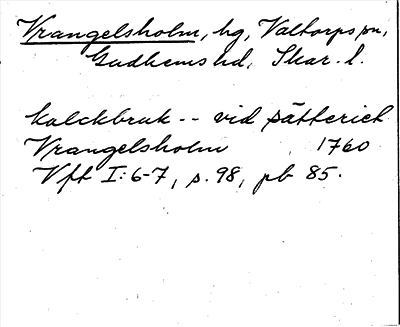 Vrangelsholm, hg, Valtorps sn,
Gudhems hd, Skar. l.
kalckbruk -- vid sätterich
Vrangelsholm 1760
Vft I:6-7, s. 98, pb 85.